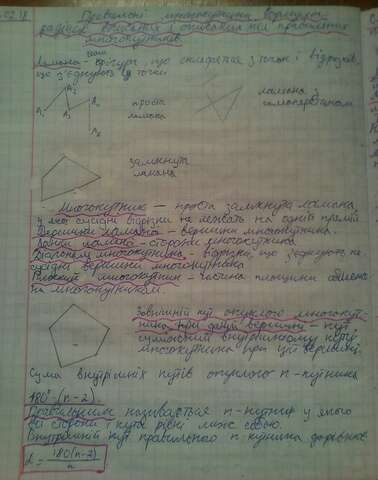 .02.18
Правильні многокутники. Формули
радіусів вписаних і описаних кіл правильних
многокутників.
Ламана – фігура, що складається з точок і відрізків,
що з'єднують ці точки
A₁ A₂ A₃ A₄
проста
ламана
ламана з
самоперетином
замкнута
ламана
Многокутник – проста замкнута ламана,
у якої сусідні відрізки не лежать на одній прямій.
Вершини ламаної – вершини многокутника.
Ланки ламаної – сторони многокутника
Діагоналі многокутника – відрізки, що з'єднують не
сусідні вершини многокутника
Плоский многокутник – частина площини обмеже
на многокутником.
Зовнішній кут опуклого многокут-
ника при даній вершині – кут
суміжний внутрішньому куту
многокутника при цій вершині.
Сума внутрішніх кутів опуклого n-кутника
180°·(n-2).
Правильним називається n-кутник у якого
всі сторони і кути рівні між собою.
Внутрішній кут правильного n-кутника дорівнює
α = 180(n-2)/n